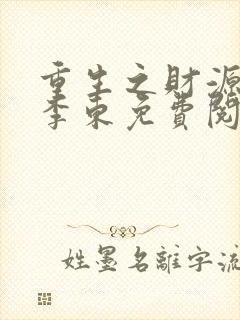 重生之財源
李東免費閱
姓墨名離字流